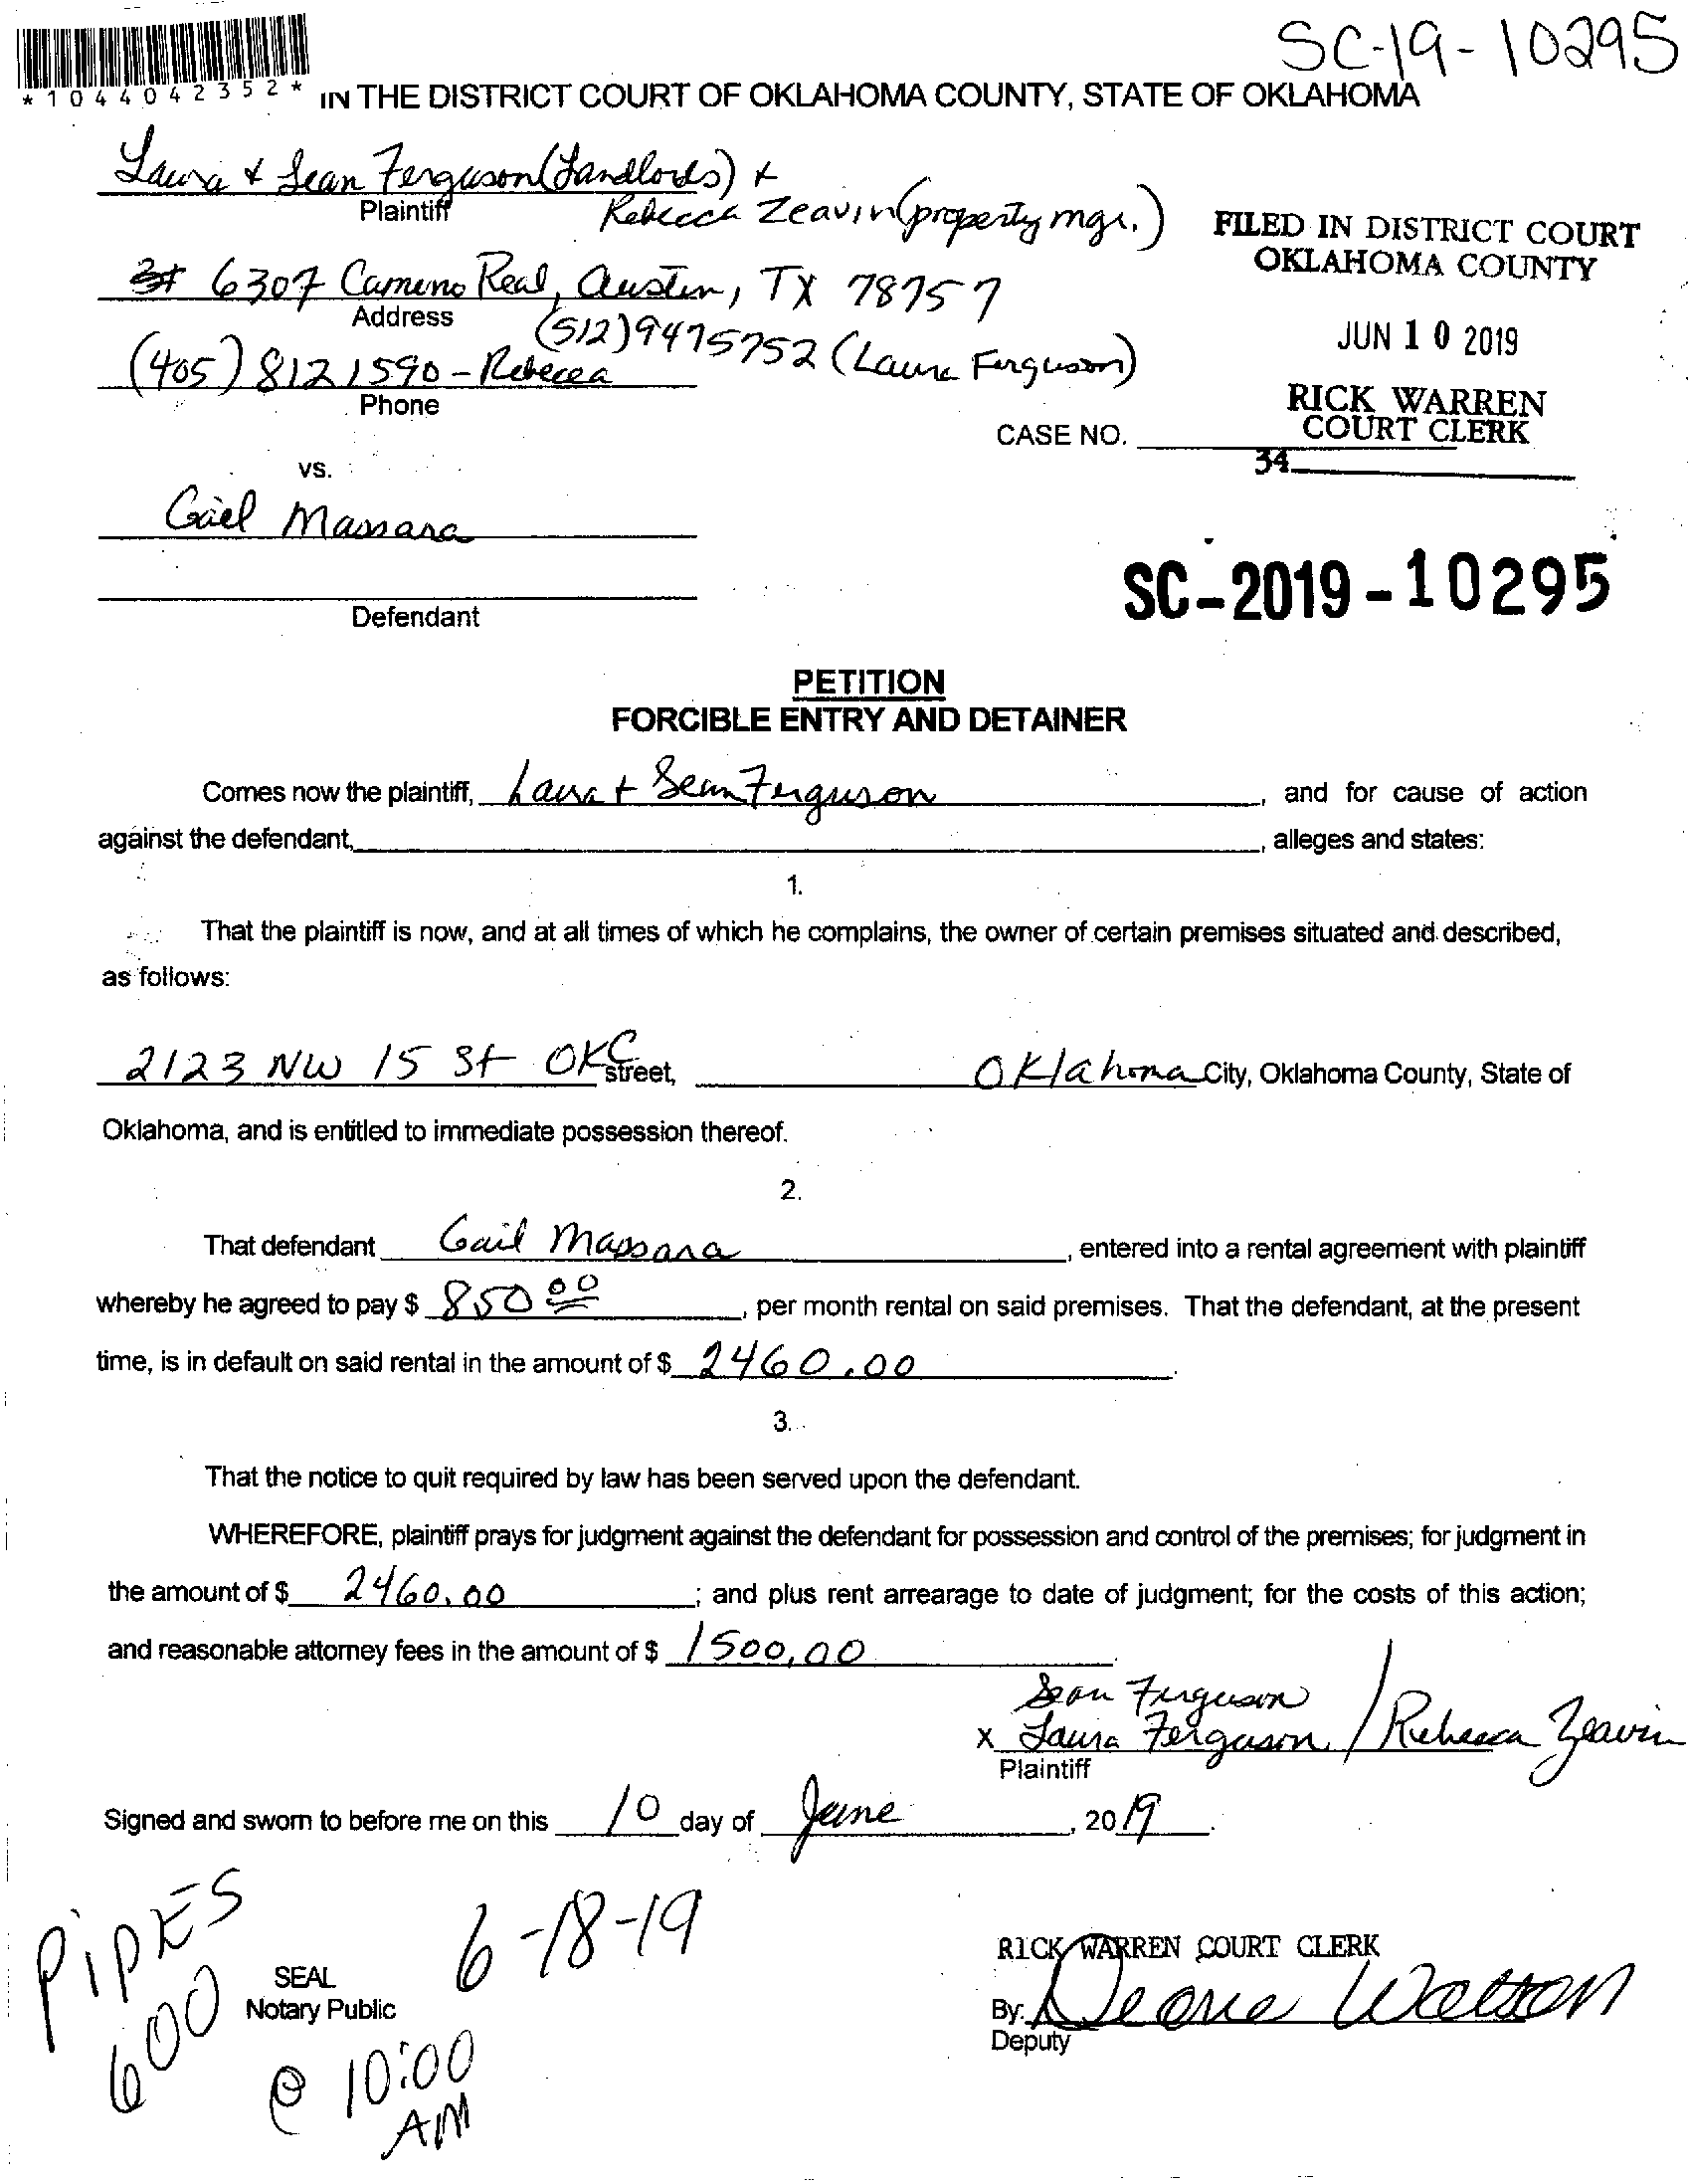 SC-19-10295
*1044042352*
IN THE DISTRICT COURT OF OKLAHOMA COUNTY, STATE OF OKLAHOMA
Laura & Sean Ferguson (Landlords) +
Plaintiff
Rebecca Zeavin (property mgr.)
FILED IN DISTRICT COURT
OKLAHOMA COUNTY
6307 Cameno Real, Austin, TX 78757
Address
(512)9475752 (Laura Ferguson)
JUN 10 2019
(405) 812 1590 - Rebecca
Phone
RICK WARREN
COURT CLERK
CASE NO.
34
vs.
Gail Massara
Defendant
SC-2019-10295
PETITION
FORCIBLE ENTRY AND DETAINER
Comes now the plaintiff, Laura + Sean Ferguson, and for cause of action
against the defendant, , alleges and states:
1.
That the plaintiff is now, and at all times of which he complains, the owner of certain premises situated and described,
as follows:
2123 NW 15 St OKC street, Oklahoma City, Oklahoma County, State of
Oklahoma, and is entitled to immediate possession thereof.
2.
That defendant Gail Massara, entered into a rental agreement with plaintiff
whereby he agreed to pay $ 850.00, per month rental on said premises. That the defendant, at the present
time, is in default on said rental in the amount of $ 2460.00.
3.
That the notice to quit required by law has been served upon the defendant.
WHEREFORE, plaintiff prays for judgment against the defendant for possession and control of the premises; for judgment in
the amount of $ 2460.00; and plus rent arrearage to date of judgment; for the costs of this action;
and reasonable attorney fees in the amount of $ 1500.00.
Sean Ferguson
x Laura Ferguson / Rebecca Zeavin
Plaintiff
Signed and sworn to before me on this 10 day of June, 2019.
PIPES
600
6-18-19
SEAL
Notary Public
@ 10:00
AM
RICK WARREN COURT CLERK
By: Watson
Deputy